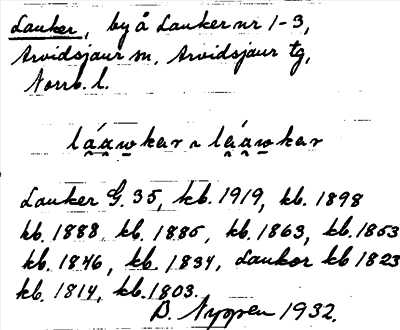 Lauker, by å Lauker nr 1-3,
Arvidsjaur sn, Arvidsjaur tg,
Norrb. l.
lá̯a̯w̱kər ~ la̯á̯w̱kər
Lauker G. 35, kb. 1919, kb. 1898
kb. 1888, kb. 1885, kb. 1863, kb. 1853
kb. 1846, kb. 1834, Laukor kb 1823
kb. 1814, kb. 1803.
D. Nygren 1932.